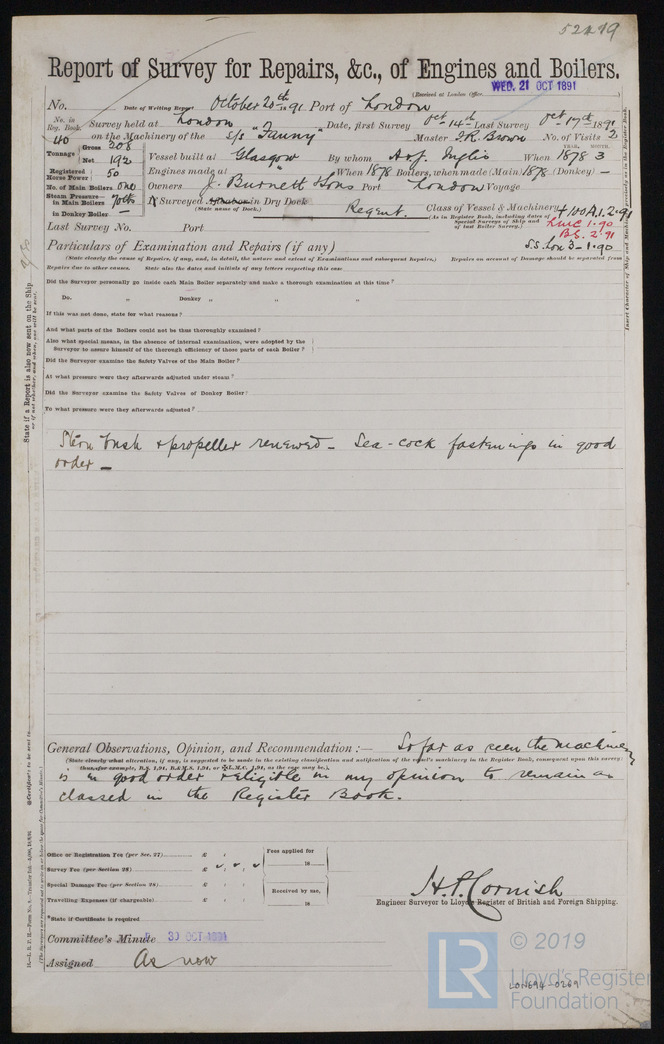 52419
Report of Survey for Repairs, &c., of Engines and Boilers.
(Received at London Office
WED. 21 OCT 1891
No. Date of Writing Report October 20th 1891 Port of London
No. in Reg. Book. Survey held at London Date, first Survey Oct 14th Last Survey Oct 17th 1891
40 on the Machinery of the S/S "Fanny" Master J.R. Brown No. of Visits 2
Tonnage Gross 208 Net 192
Vessel built at Glasgow By whom A & J. Inglis When 1878 3
YEAR. MONTH.
Registered Horse Power 50
Engines made at When 1878 Boilers, when made (Main) 1878 (Donkey) —
No. of Main Boilers one
Owners J. Burnett & Sons Port London Voyage
Steam Pressure in Main Boilers 70lbs
in Donkey Boiler —
If Surveyed in Dry Dock Regent.
(State name of Dock.)
Class of Vessel & Machinery +100A.1. 2.91
(As in Register Book, including dates of Special Surveys of Ship and of last Boiler Survey.)
LMC 1.90
BS. 2.91
S.S. Lon 3 - 1.90
Last Survey No. Port
Particulars of Examination and Repairs (if any)
(State clearly the cause of Repairs, if any, and, in detail, the nature and extent of Examinations and subsequent Repairs.) Repairs on account of Damage should be separated from
Repairs due to other causes. State also the dates and initials of any letters respecting this case
Did the Surveyor personally go inside each Main Boiler separately and make a thorough examination at this time?
Do. „ Donkey „ „ „
If this was not done, state for what reasons?
And what parts of the Boilers could not be thus thoroughly examined?
Also what special means, in the absence of internal examination, were adopted by the
Surveyor to assure himself of the thorough efficiency of those parts of each Boiler?
Did the Surveyor examine the Safety Valves of the Main Boiler?
At what pressure were they afterwards adjusted under steam?
Did the Surveyor examine the Safety Valves of Donkey Boiler?
To what pressure were they afterwards adjusted?
Stern bush & propeller renewed - Sea-cock fastenings in good
order —
General Observations, Opinion, and Recommendation :— So far as seen the machinery
(State clearly what alteration, if any, is suggested to be made in the existing classification and notification of the vessel's machinery in the Register Book, consequent upon this survey;
thus, for example, B.S. 1,94, B.&M.S. 1,94, or L.M.C. 1,94, as the case may be.)
is in good order & eligible in my opinion to remain as
classed in the Register Book.
Office or Registration Fee (per Sec. 27) £
Survey Fee (per Section 28) £
Special Damage Fee (per Section 28) £
Travelling Expenses (if chargeable) £
Fees applied for
18
Received by me,
18
*State if Certificate is required
H.P. Cornish
Engineer Surveyor to Lloyd's Register of British and Foreign Shipping.
Committee's Minute 30 OCT 1891
Assigned As now
LR © 2019
Lloyd's Register
Foundation
LON694-0269
State if a Report is also now sent on the Ship
or if not whether, and when, you will be sent.